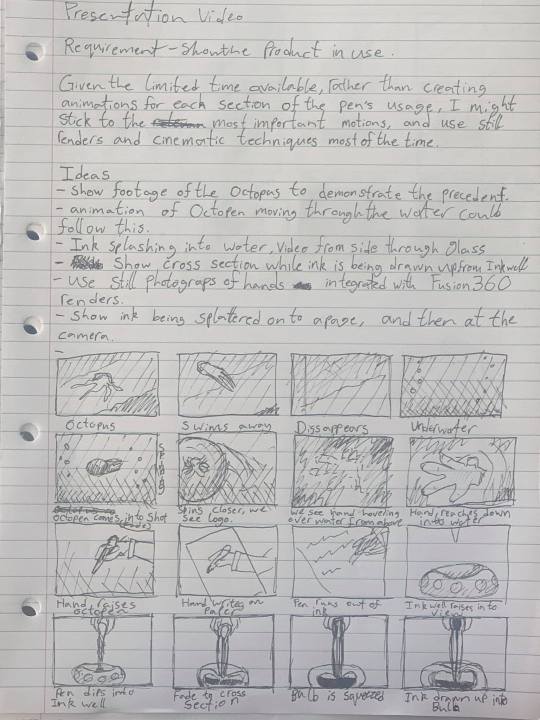 Presentation Video
Requirement - Show the Product in use.
Given the limited time available, rather than creating
animations for each section of the pen's usage, I might
stick to the most important motions, and use still
renders and cinematic techniques most of the time.
Ideas
- Show footage of the Octopus to demonstrate the precedent.
- animation of Octopen moving through the water could
follow this.
- Ink splashing into water, video from side through glass
- Show cross section while ink is being drawn up from Inkwell
- Use still photograps of hands integrated with Fusion 360
renders.
- Show ink being splattered on to a page, and then at the
camera.
-
Octopus
Swims away
Dissappears
Underwater
Octopen comes into shot
Spins closer, we
see logo.
We see hand hovering
over water from above
Hand reaches down
into water
Hand raises
octopen
Hand writes on
Paper
Pen runs out of
ink
Ink well raises in to
view
Pen dips into
Ink well
Fade to cross
Section
Bulb is squeezed
Ink drawn up into
Bulb